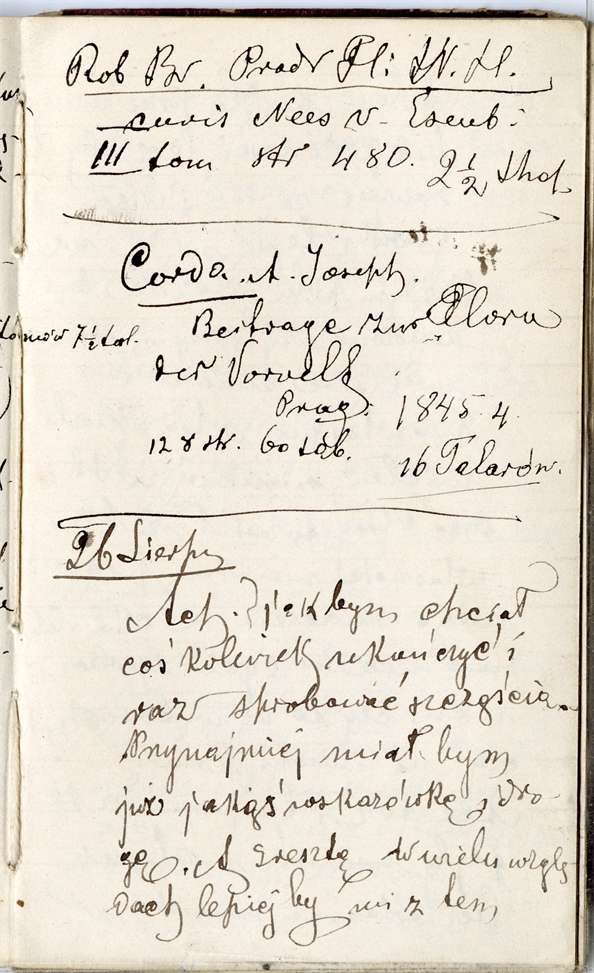 Rob Br. Prodr Fl: N. H.
curis Nees v. Esenb:
III tom str 480. 2 1/2 thal.
Corda. A. Joseph.
Beitrage zur Flora
der Vorwelt
Prag. 1845. 4.
128 str. 60 tab.
16 Talarów.
tomów 7 1/2 tal.
26 Sierp
Ach jak bym chciał
coś kolwiek ukończyć i
raz sprobować szczęścia.
Przynajmniej miał bym
już jakąś wskazówkę, dro-
gę. A zresztą w wielu wzglę
dach lepiej by mi z tem